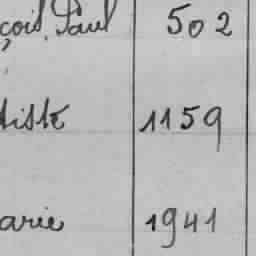 çois Paul 502
tiste 1159
arie 1941